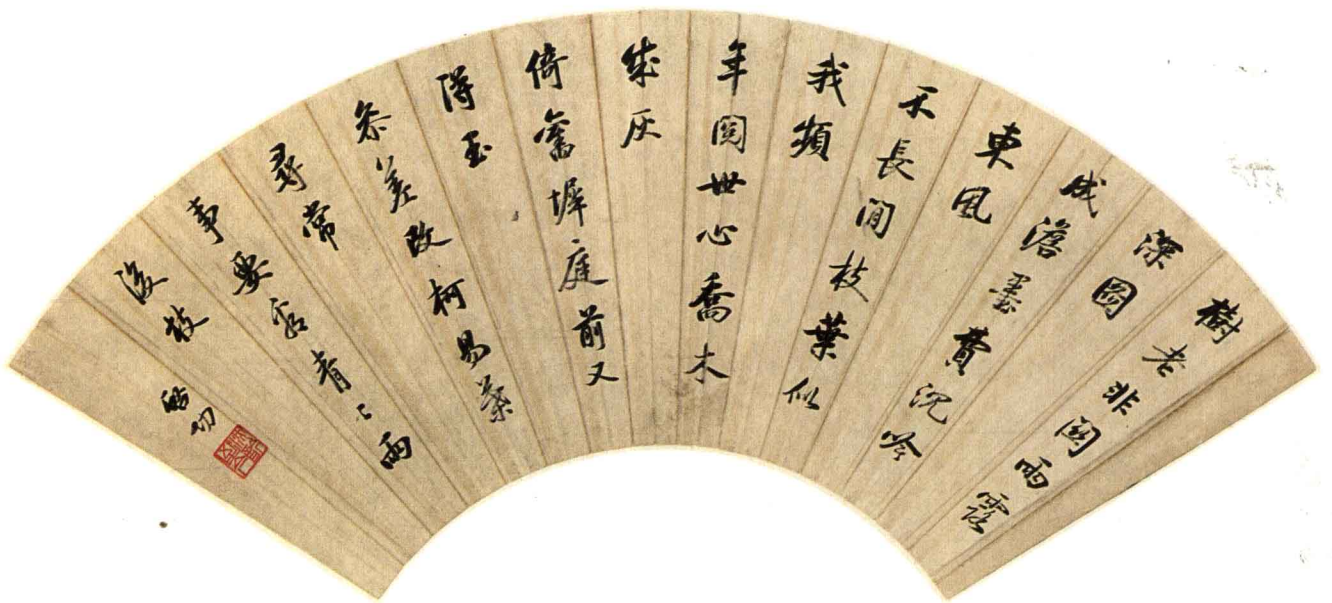 樹老非關雨露
深圖
成澹墨費沉吟
東風
不長閒枝葉似
我頻
年閱世心喬木
成灰
倚舊墀庭前又
得玉
參差改柯易葉
尋常
事要看青〻雨
後枝
啟功